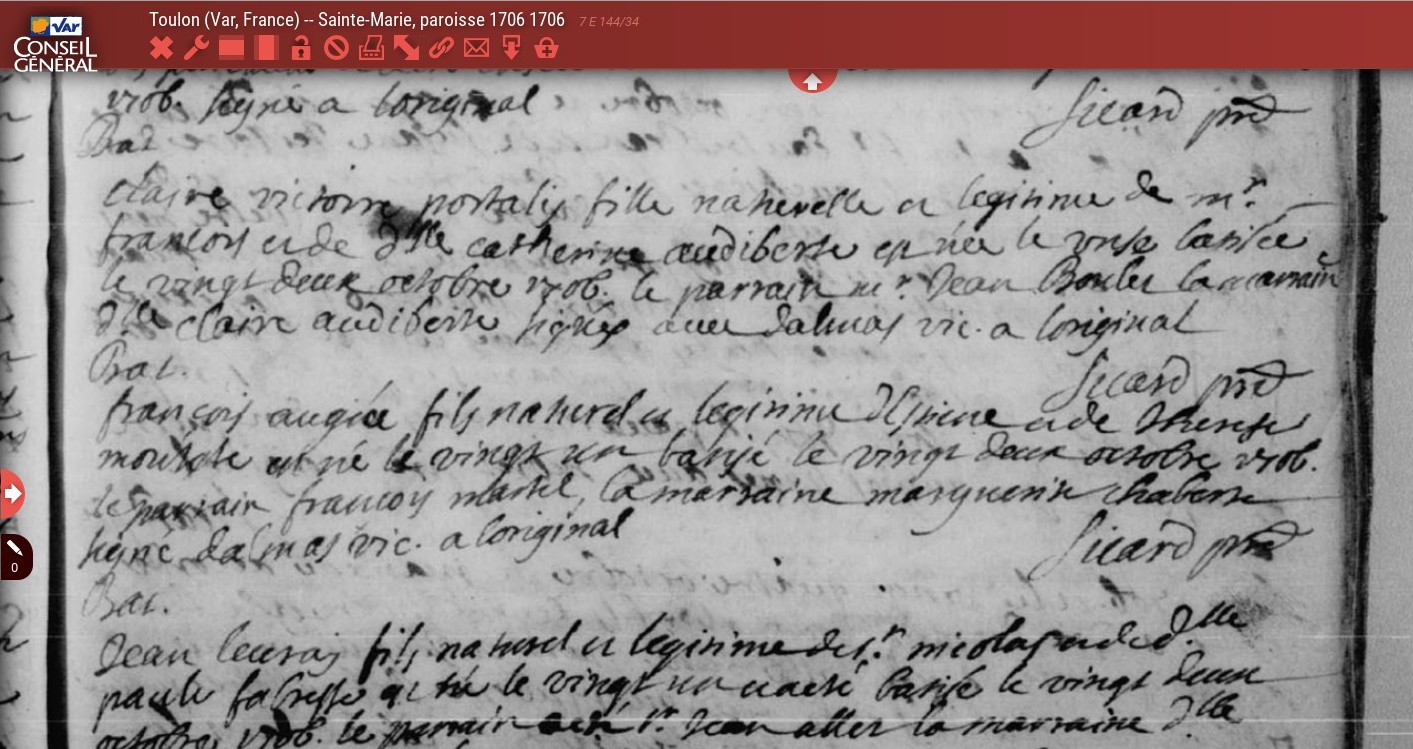 Toulon (Var, France) -- Sainte-Marie, paroisse 1706 1706 7 E 144/34
VAR
CONSEIL GÉNÉRAL
1706. signé a loriginal
Sicard prê
Bat
Claire victoire portalis fille naturelle et legitime de mr.
francois et de dlle catherine audiberte est née le onse batisée
le vingt deux octobre 1706. le parrain mr. Jean Boulet la marraine
dlle claire audiberte signés avec dalmas vic. a loriginal
Bat.
Sicard prê
francois augiée fils naturel et legitime de et de Therese
est né le vingt un batisé le vingt deux octobre 1706.
le parrain francois martel, la marraine marguerite chaberte
signé dalmas vic. a loriginal
Sicard prê
Bat.
Jean fils naturel et legitime de sr. nicolas et de dlle
paule fabresse né le vingt un batisé le vingt deux
octobre 1706. le parrain sr. Jean la marraine dlle
0